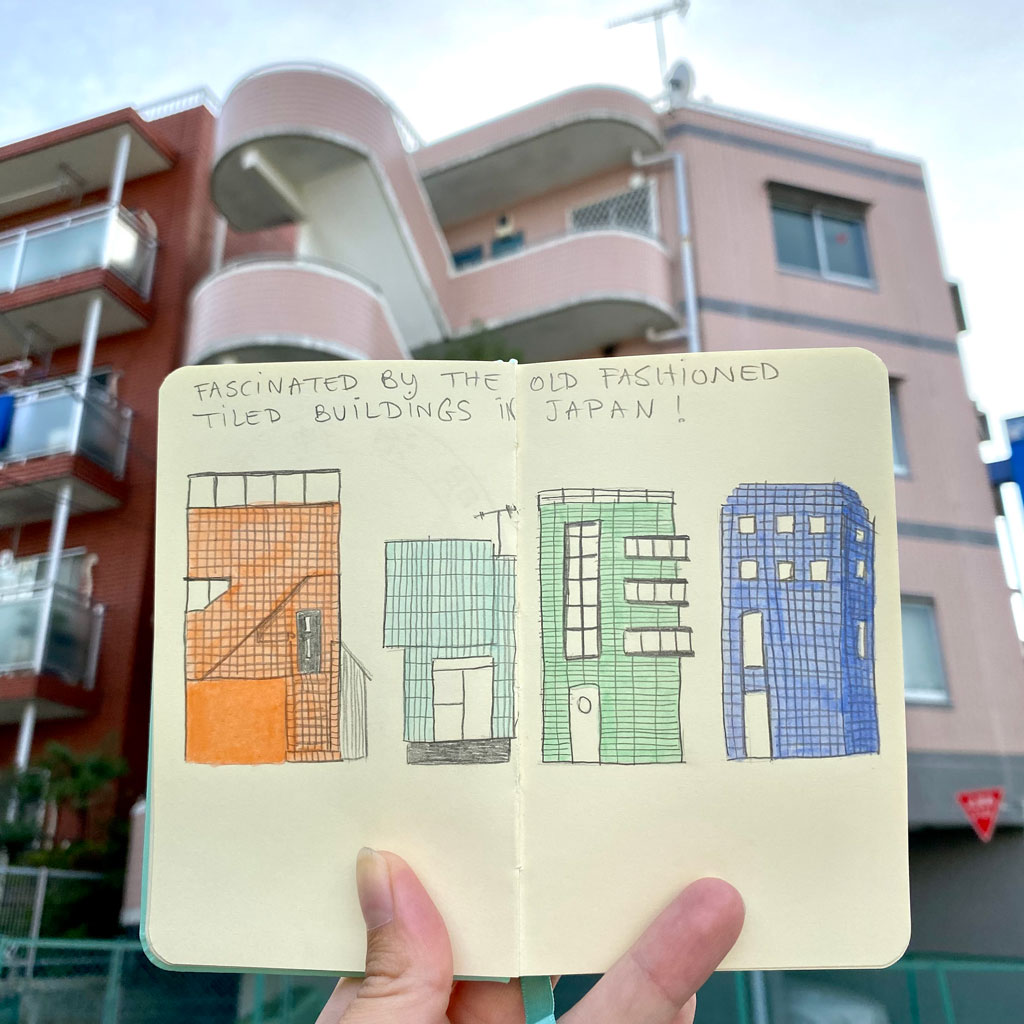 FASCINATED BY THE OLD FASHIONED
TILED BUILDINGS IN JAPAN!